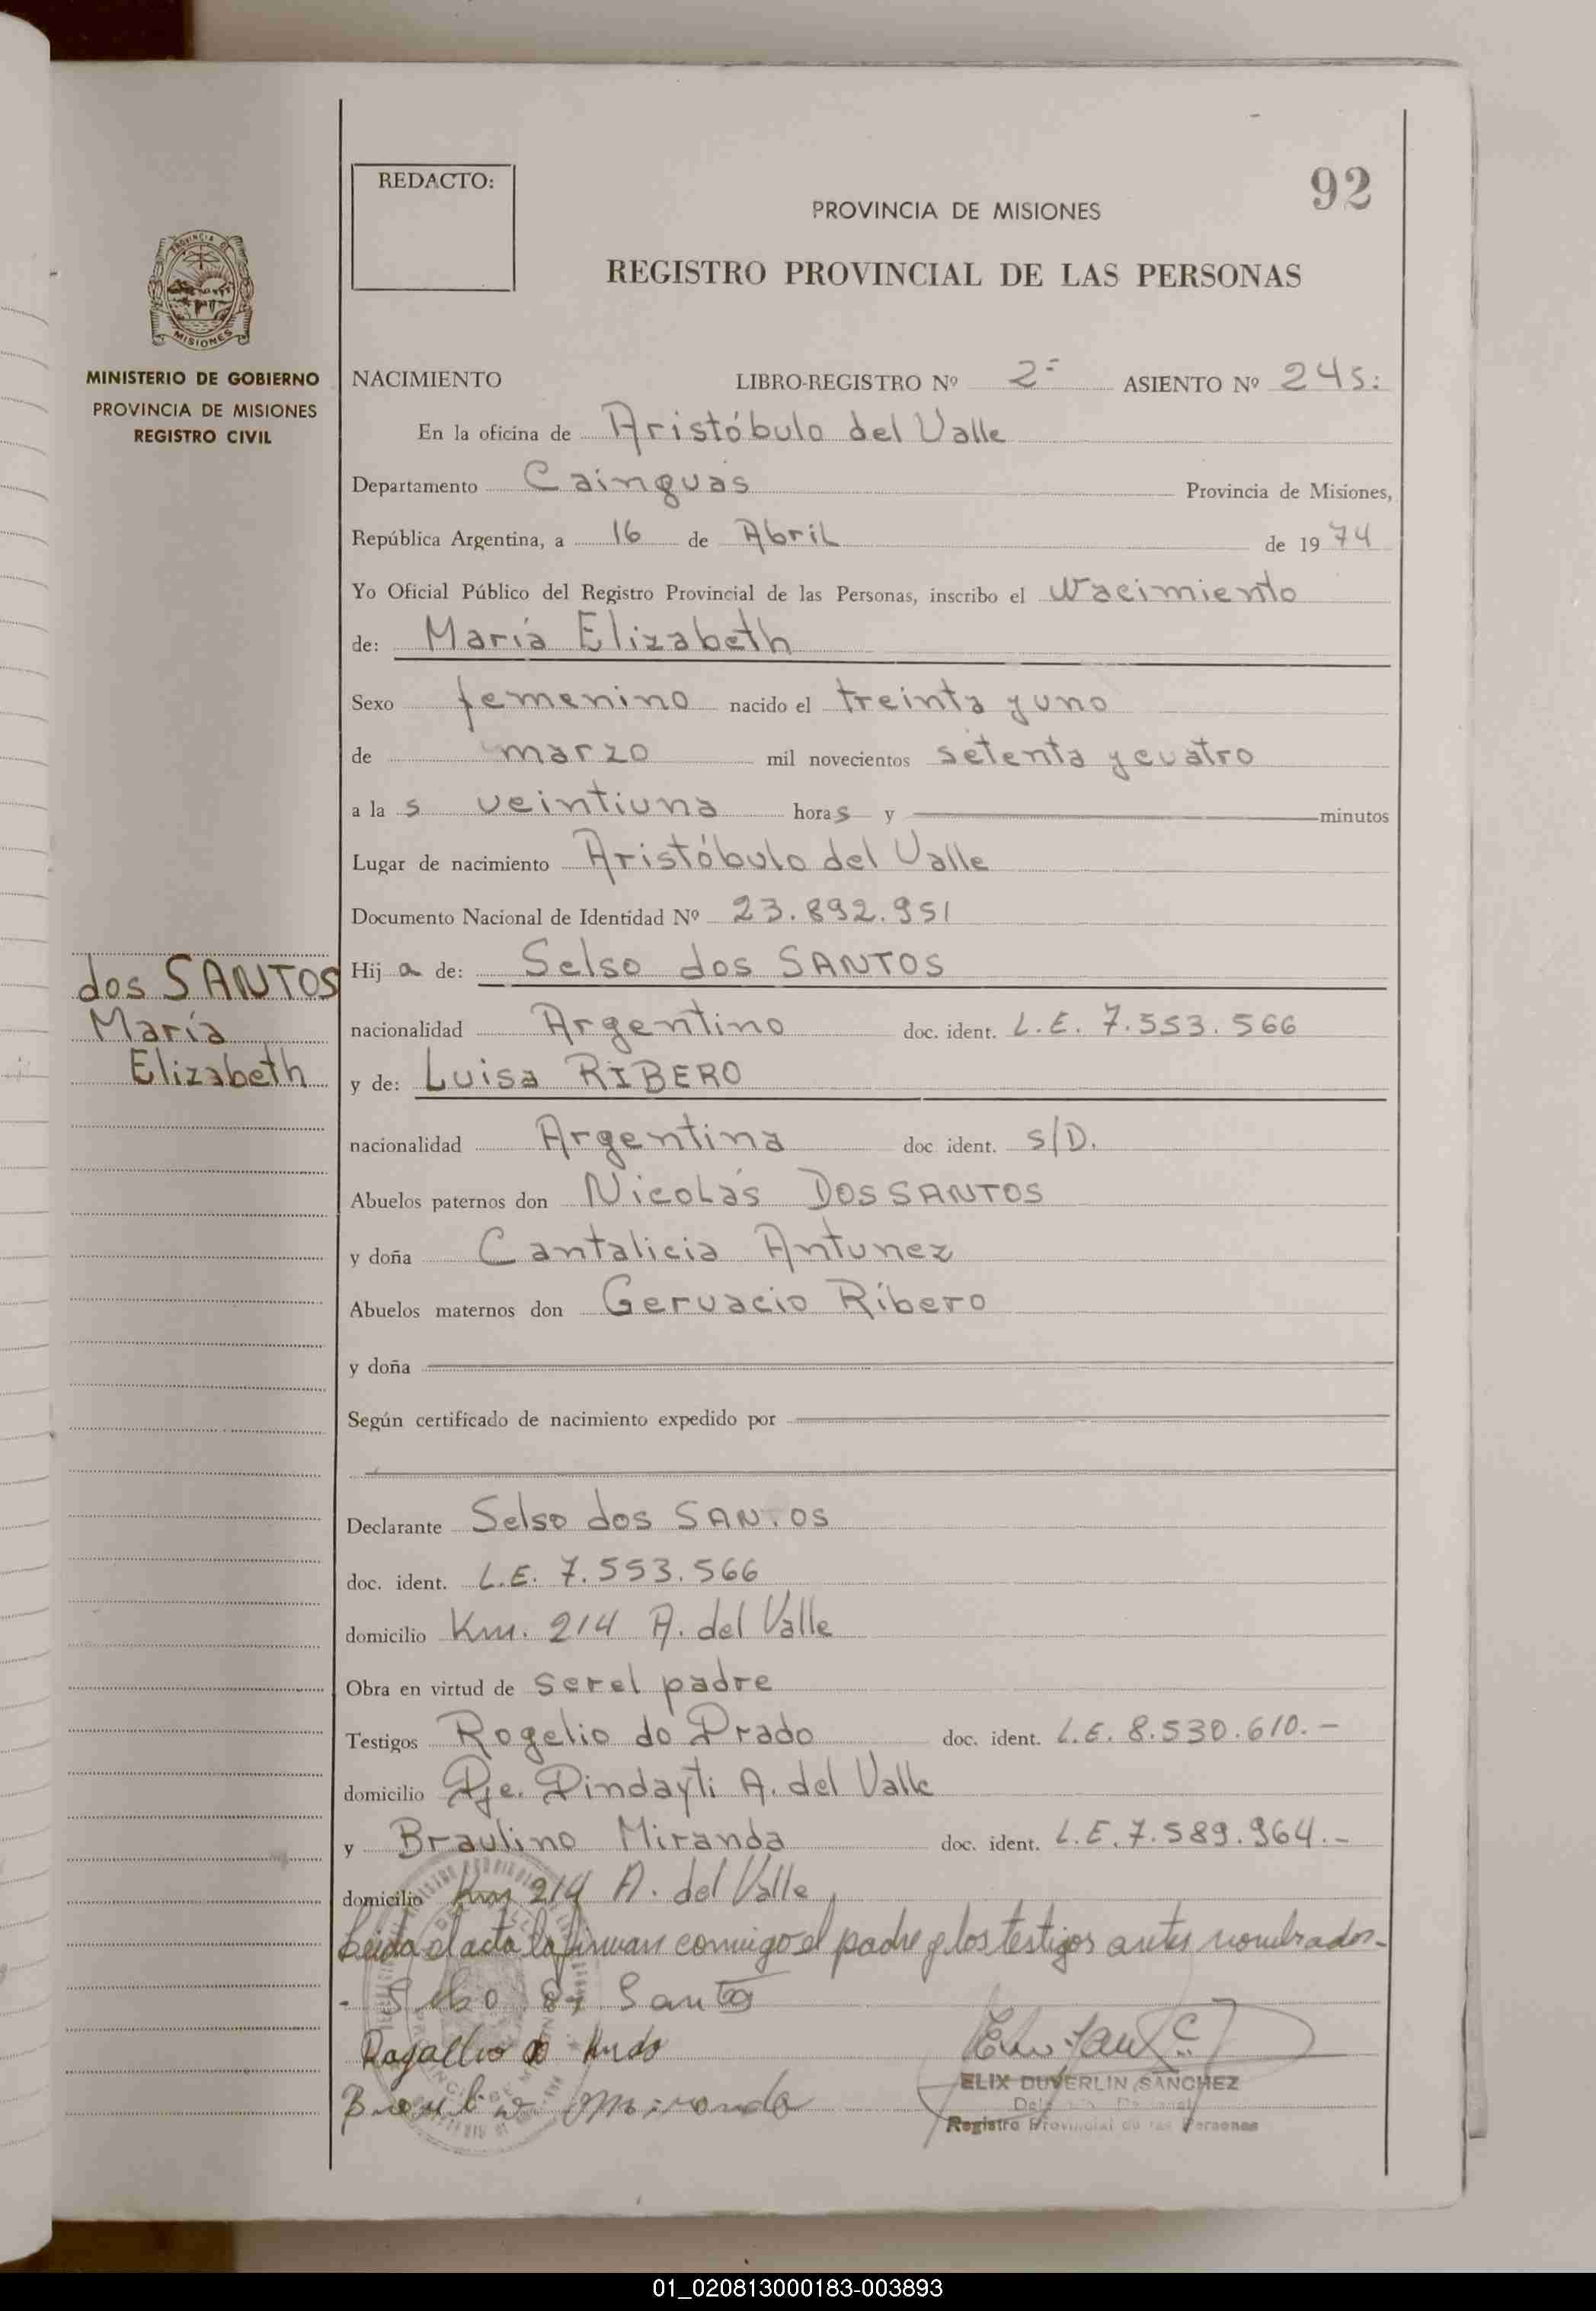 92
REDACTO:
PROVINCIA DE MISIONES
REGISTRO PROVINCIAL DE LAS PERSONAS
MINISTERIO DE GOBIERNO
PROVINCIA DE MISIONES
REGISTRO CIVIL
NACIMIENTO LIBRO-REGISTRO Nº 2- ASIENTO Nº 245:
En la oficina de Aristóbulo del Valle
Departamento Cainguas Provincia de Misiones,
República Argentina, a 16 de Abril de 1974
Yo Oficial Público del Registro Provincial de las Personas, inscribo el Nacimiento
de: María Elizabeth
Sexo femenino nacido el treinta y uno
de marzo mil novecientos setenta y cuatro
a la s veintiuna hora s y minutos
Lugar de nacimiento Aristóbulo del Valle
Documento Nacional de Identidad Nº 23.892.951
dos SANTOS
María
Elizabeth
Hij a de: Selso dos SANTOS
nacionalidad Argentino doc. ident. L.E. 7.553.566
y de: Luisa RIBERO
nacionalidad Argentina doc ident. S/D.
Abuelos paternos don Nicolás DOS SANTOS
y doña Cantalicia Antunez
Abuelos maternos don Gervacio Ribero
y doña
Según certificado de nacimiento expedido por
Declarante Selso dos SANTOS
doc. ident. L.E. 7.553.566
domicilio Km. 214 A. del Valle
Obra en virtud de ser el padre
Testigos Rogelio do Prado doc. ident. L.E. 8.530.610.-
domicilio Pje. Pindayti A. del Valle
y Braulino Miranda doc. ident. L.E. 7.589.964.-
domicilio Km 214 A. del Valle
Leida el acta la firman conmigo el padre y los testigos antes nombrados-
Santos
Miranda
ELIX DUVERLIN SANCHEZ
Registro Provincial de las Personas
01_020813000183-003893